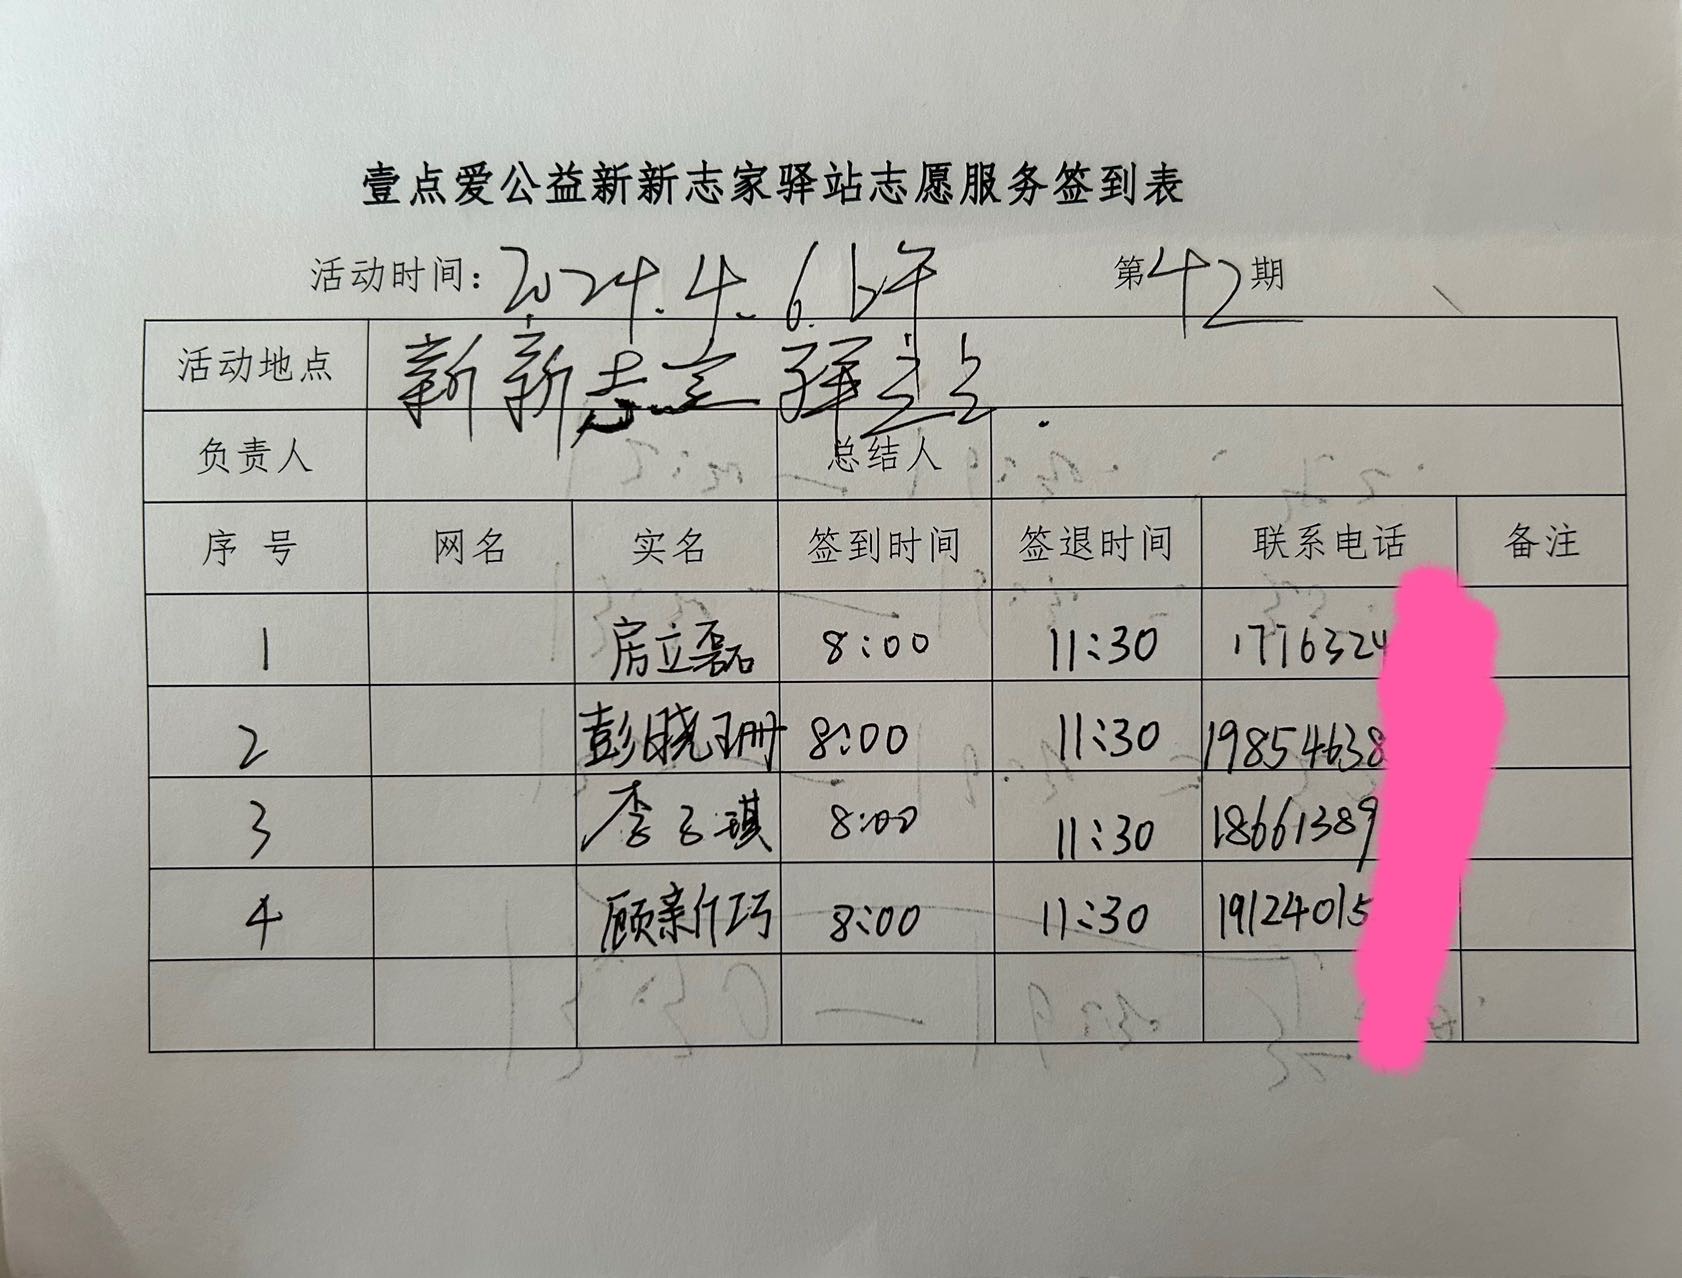 壹点爱公益新新志家驿站志愿服务签到表
活动时间：2024.4.6.上午 第42期
活动地点 新新志家驿站
负责人 总结人
序号 网名 实名 签到时间 签退时间 联系电话 备注
1 房立磊 8:00 11:30 1776324
2 彭晓珊 8:00 11:30 19854638
3 李子琪 8:00 11:30 18661389
4 顾新巧 8:00 11:30 19124015